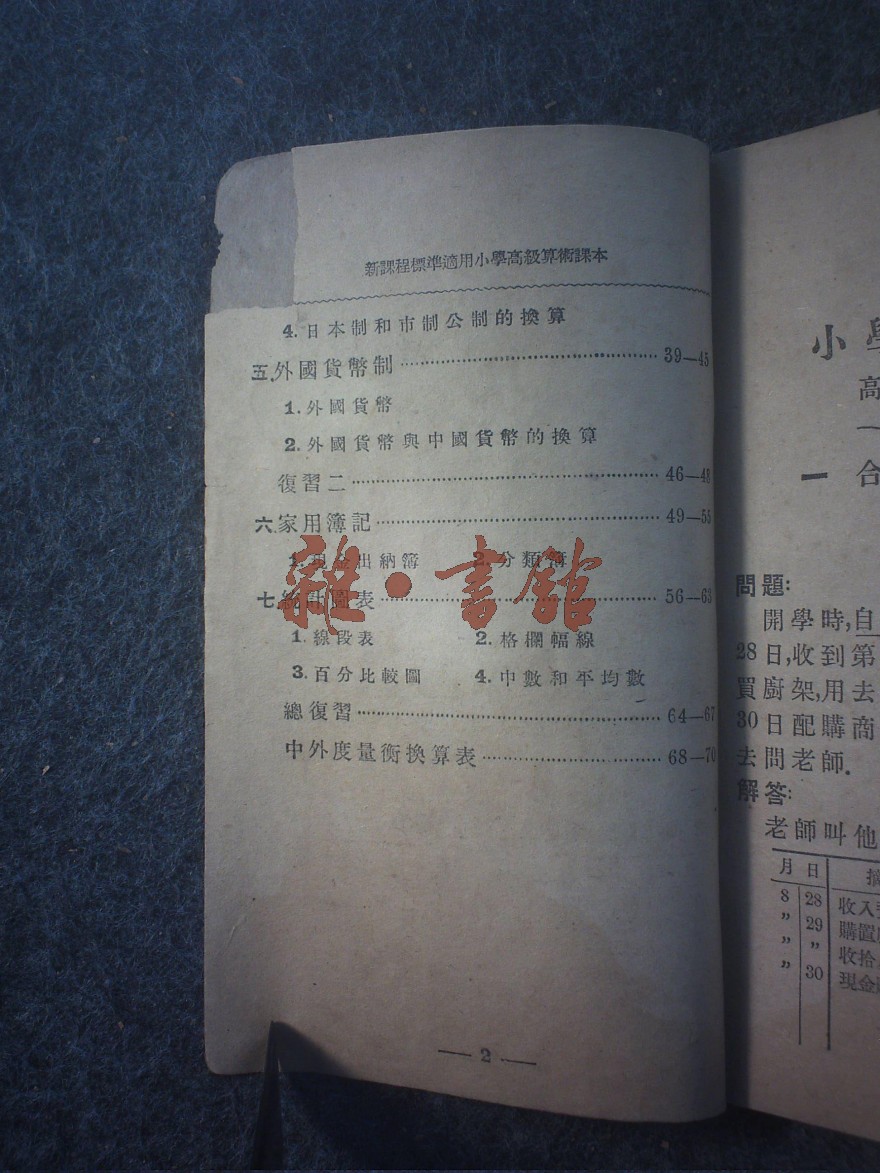 新課程標準適用小學高級算術課本
4.日本制和市制公制的換算
五.外國貨幣制……39—45
1.外國貨幣
2.外國貨幣與中國貨幣的換算
復習二……46—48
六.家用簿記……49—55
1.現金出納簿 2.分類簿
七.統計圖表……56—63
1.線段表 2.格欄幅線
3.百分比較圖 4.中數和平均數
總復習……64—67
中外度量衡換算表……68—70
—2—
雜·書館
小學
高
一 合
問題:
開學時,自
28日,收到第
買廚架,用去
30日配購商
去問老師.
解答:
老師叫他
月 日
8 28 收入
〃 29 購置
〃 〃 收拾
〃 30 現金